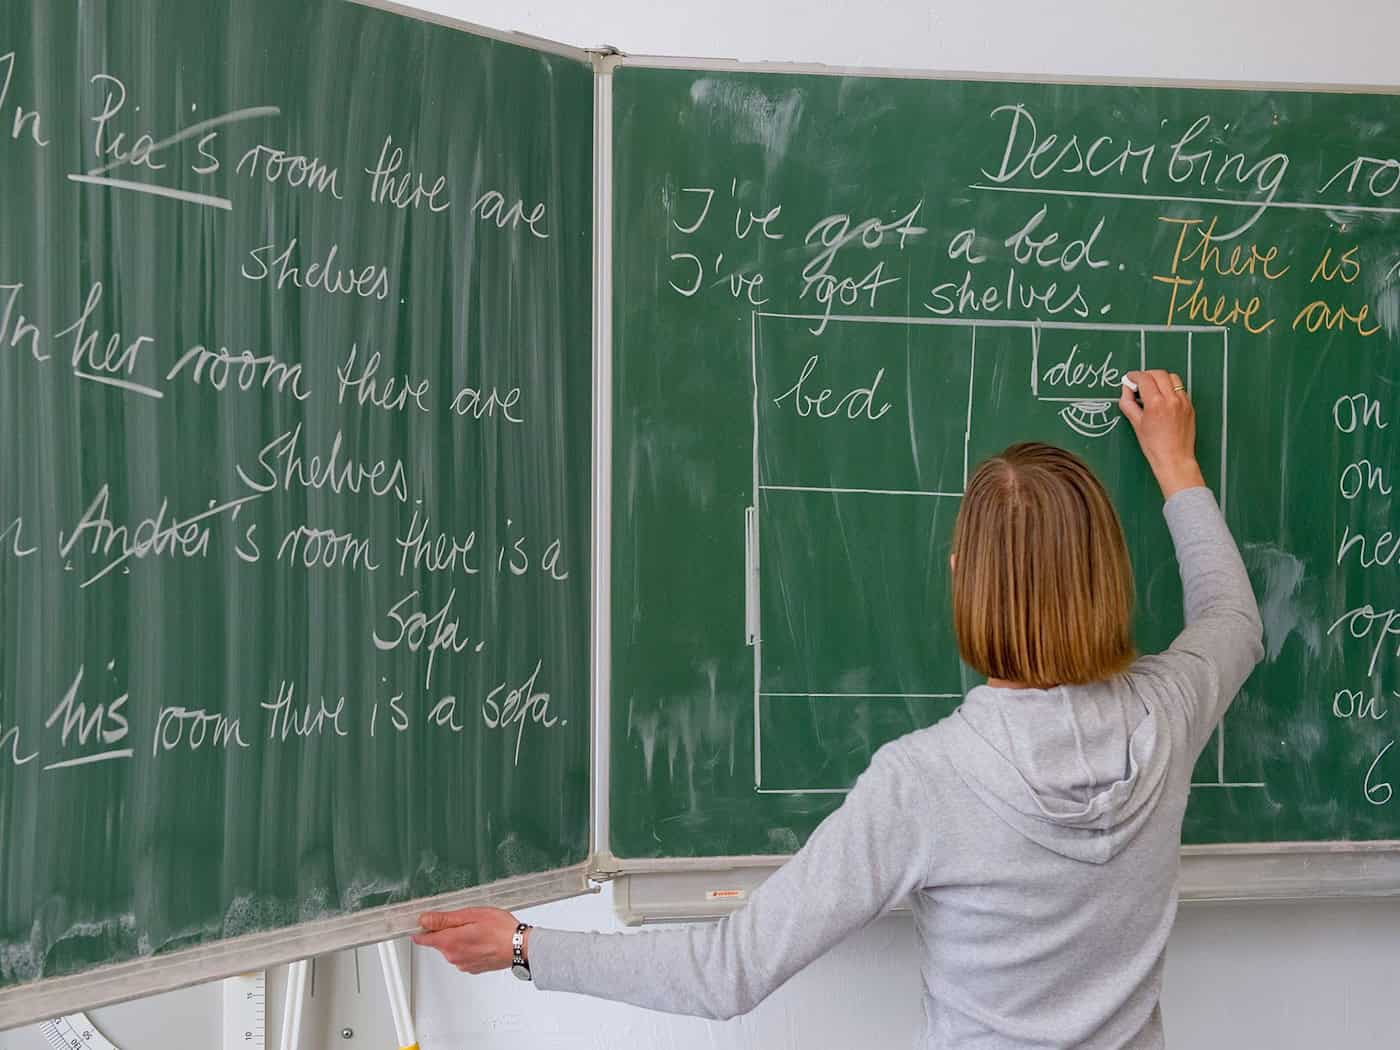 In Pia's room there are
shelves.
In her room there are
shelves.
In Andrei's room there is a
sofa.
In his room there is a sofa.
Describing ro
I've got a bed. There is
I've got shelves. There are
bed
desk
on
on
ne
op
on
6